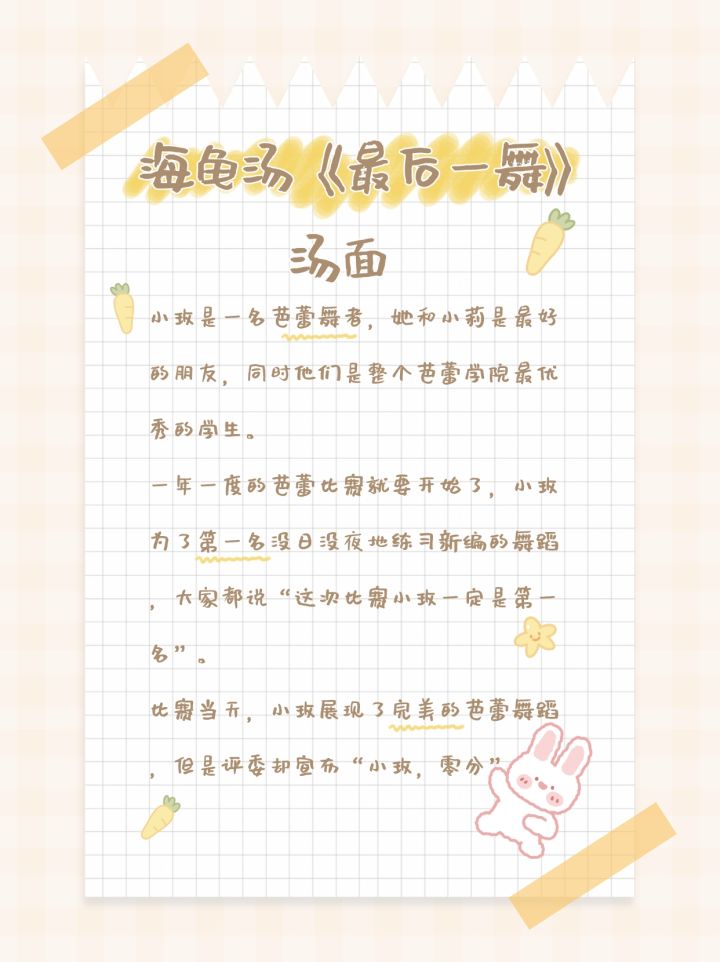 海龟汤《最后一舞》
汤面
小玫是一名芭蕾舞者，她和小莉是最好
的朋友，同时他们是整个芭蕾学院最优
秀的学生。
一年一度的芭蕾比赛就要开始了，小玫
为了第一名没日没夜地练习新编的舞蹈
，大家都说“这次比赛小玫一定是第一
名”。
比赛当天，小玫展现了完美的芭蕾舞蹈
，但是评委却宣布“小玫，零分”